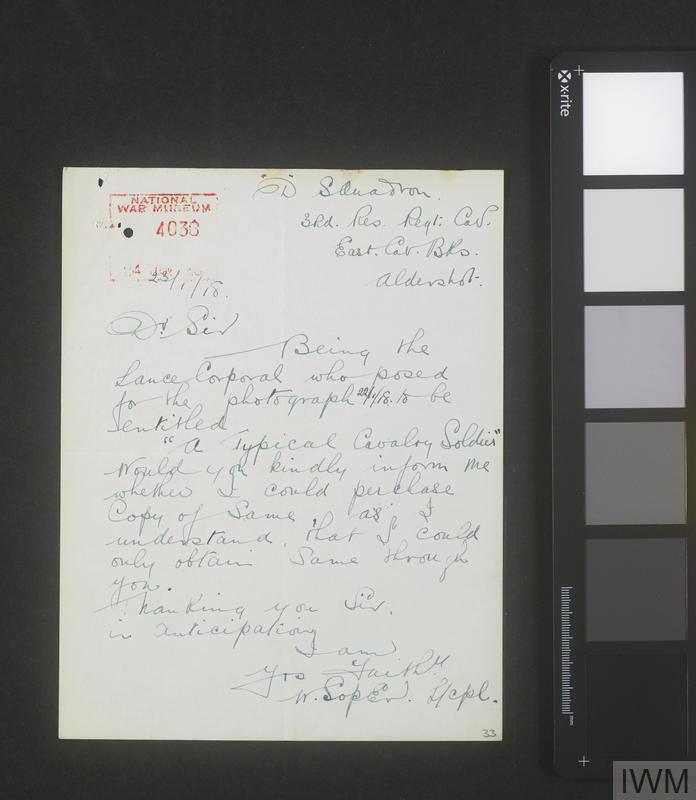 "D" Squadron.
3rd. Res. Regt. Cav.
East. Cav. Bks.
Aldershot.
NATIONAL
WAR MUSEUM
4036
23/1/18.
Dr Sir
Being the
Lance Corporal who posed
for the photograph 22/1/18. to be
entitled
"A Typical Cavalry Soldier"
Would you kindly inform me
whether I could perchase
Copy of Same, as I
understand, that I could
only obtain Same through
you.
Thanking you Sir,
in anticipation
I am
Yrs Faithy
W. Soper. L/cpl.
33
x-rite
mm
IWM